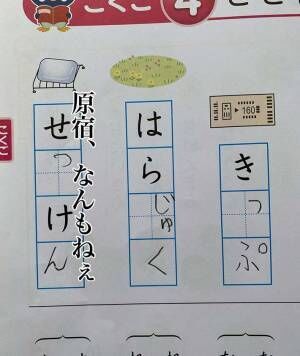 こくご 4
160
きっぷ
はらじゅく
せっけん
原宿、なんもねぇ
こくご